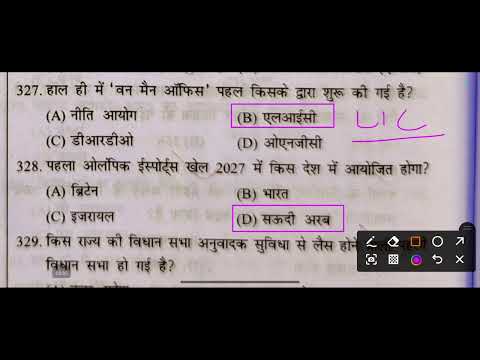 327. हाल ही में 'वन मैन ऑफिस' पहल किसके द्वारा शुरू की गई है?
(A) नीति आयोग (B) एलआईसी LIC
(C) डीआरडीओ (D) ओएनजीसी
328. पहला ओलंपिक ईस्पोर्ट्स खेल 2027 में किस देश में आयोजित होगा?
(A) ब्रिटेन (B) भारत
(C) इजरायल (D) सऊदी अरब
329. किस राज्य की विधान सभा अनुवादक सुविधा से लैस होने
विधान सभा हो गई है?